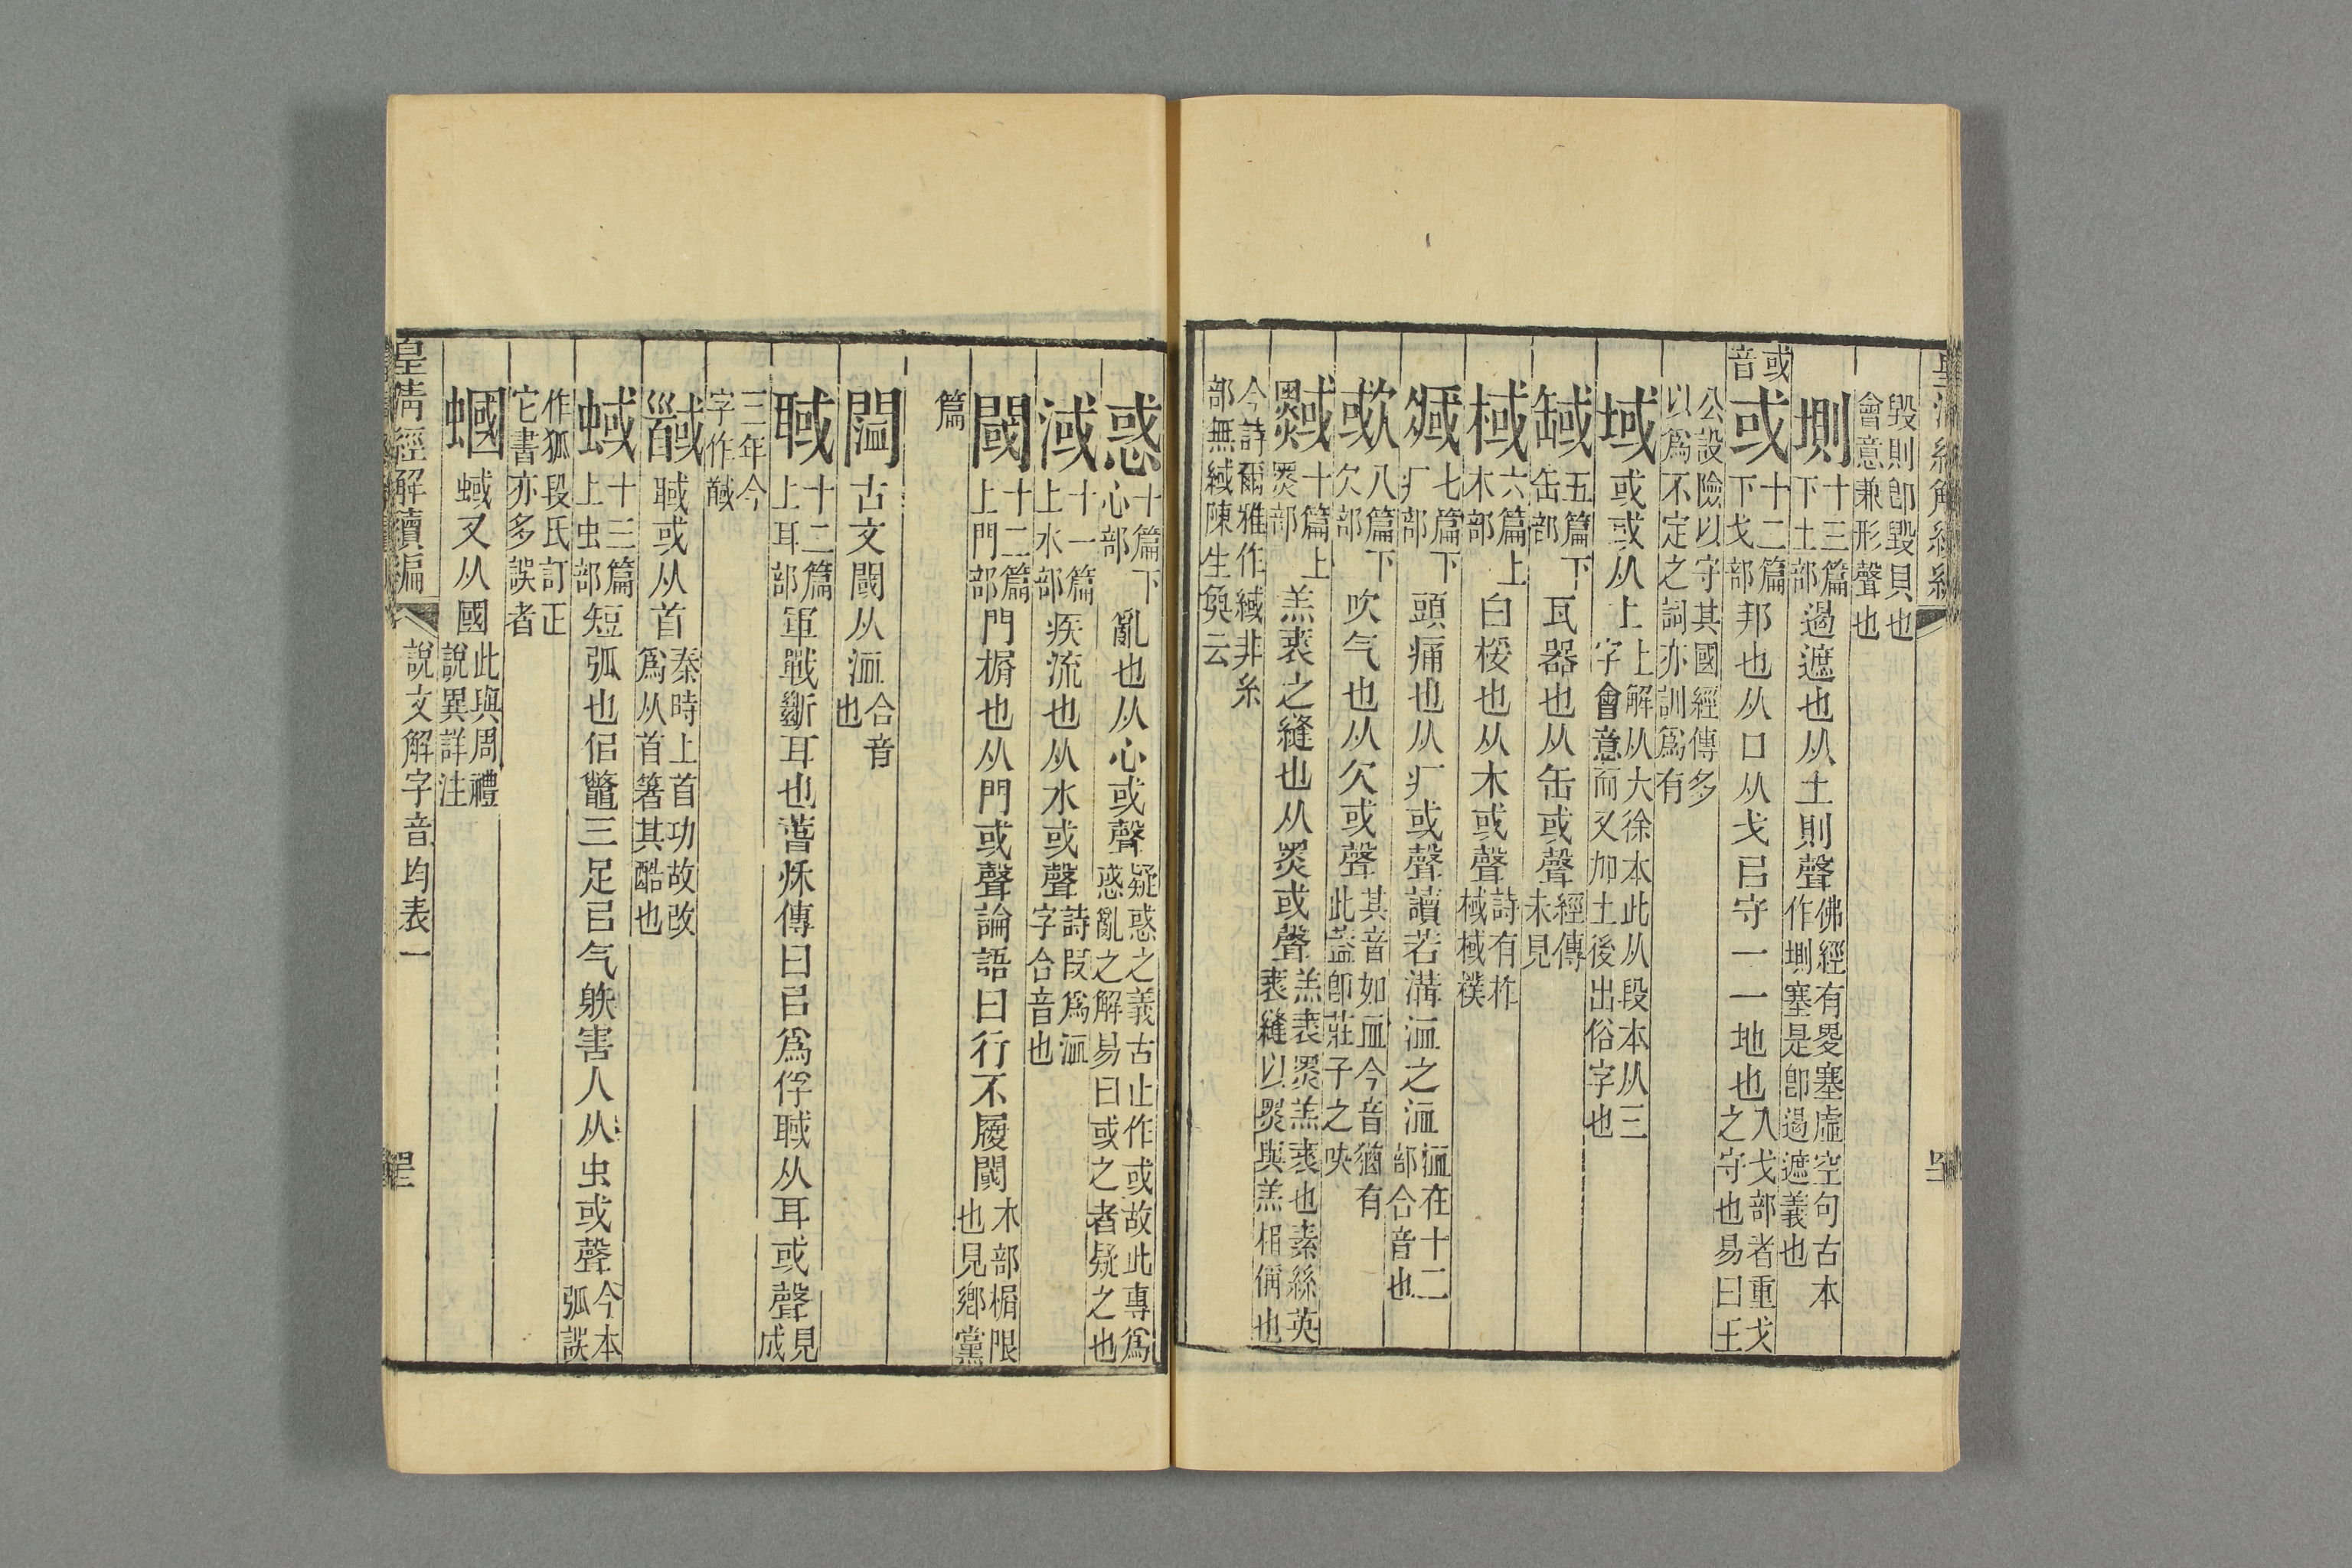 毀則卽毀貝也
會意兼形聲也
堲十三篇下土部遏遮也从土則聲佛經有愛塞虛空句古本作堲塞是卽遏遮義也
或音
或十二篇下戈部邦也从口从戈㠯守一一地也入戈部者重戈之守也易曰王
公設險以守其國經傳多
以爲不定之詞亦訓爲有
域或或从土上解从大徐本此从段本从三字會意而又加土後出俗字也
䍞五篇下缶部瓦器也从缶或聲經傳未見
棫六篇上木部白桵也从木或聲詩有柞棫棫樸
㽣七篇下疒部頭痛也从疒或聲讀若溝洫之洫洫在十二部合音也
㰲八篇下欠部吹气也从欠或聲其音如洫今音猶有此蓋卽莊子之吷
黬十篇上炎部羔裘之縫也从炎或聲羔裘炎羔裘也素絲英裘縫以炎與羔相偁也
今詩爾雅作緎非糸
部無緎陳生奐云
惑十篇下心部亂也从心或聲疑惑之義古止作或故此專爲惑亂之解易曰或之者疑之也
淢十一篇上水部疾流也从水或聲詩叚爲洫字合音也
閾十二篇上門部門榍也从門或聲論語曰行不履閾木部榍限也見鄉黨
篇
䦗古文閾从洫合音也
聝十二篇上耳部軍戰斷耳也春秋傳曰㠯爲俘聝从耳或聲見成
三年今
字作馘
馘聝或从首秦時上首功故改爲从首箸其酷也
蜮十三篇上虫部短弧也佀鼈三足㠯气䠶害人从虫或聲今本弧誤
作狐段氏訂正
它書亦多誤者
蟈蜮又从國此與周禮說異詳注
皇淸經解續編
說文解字音均表一